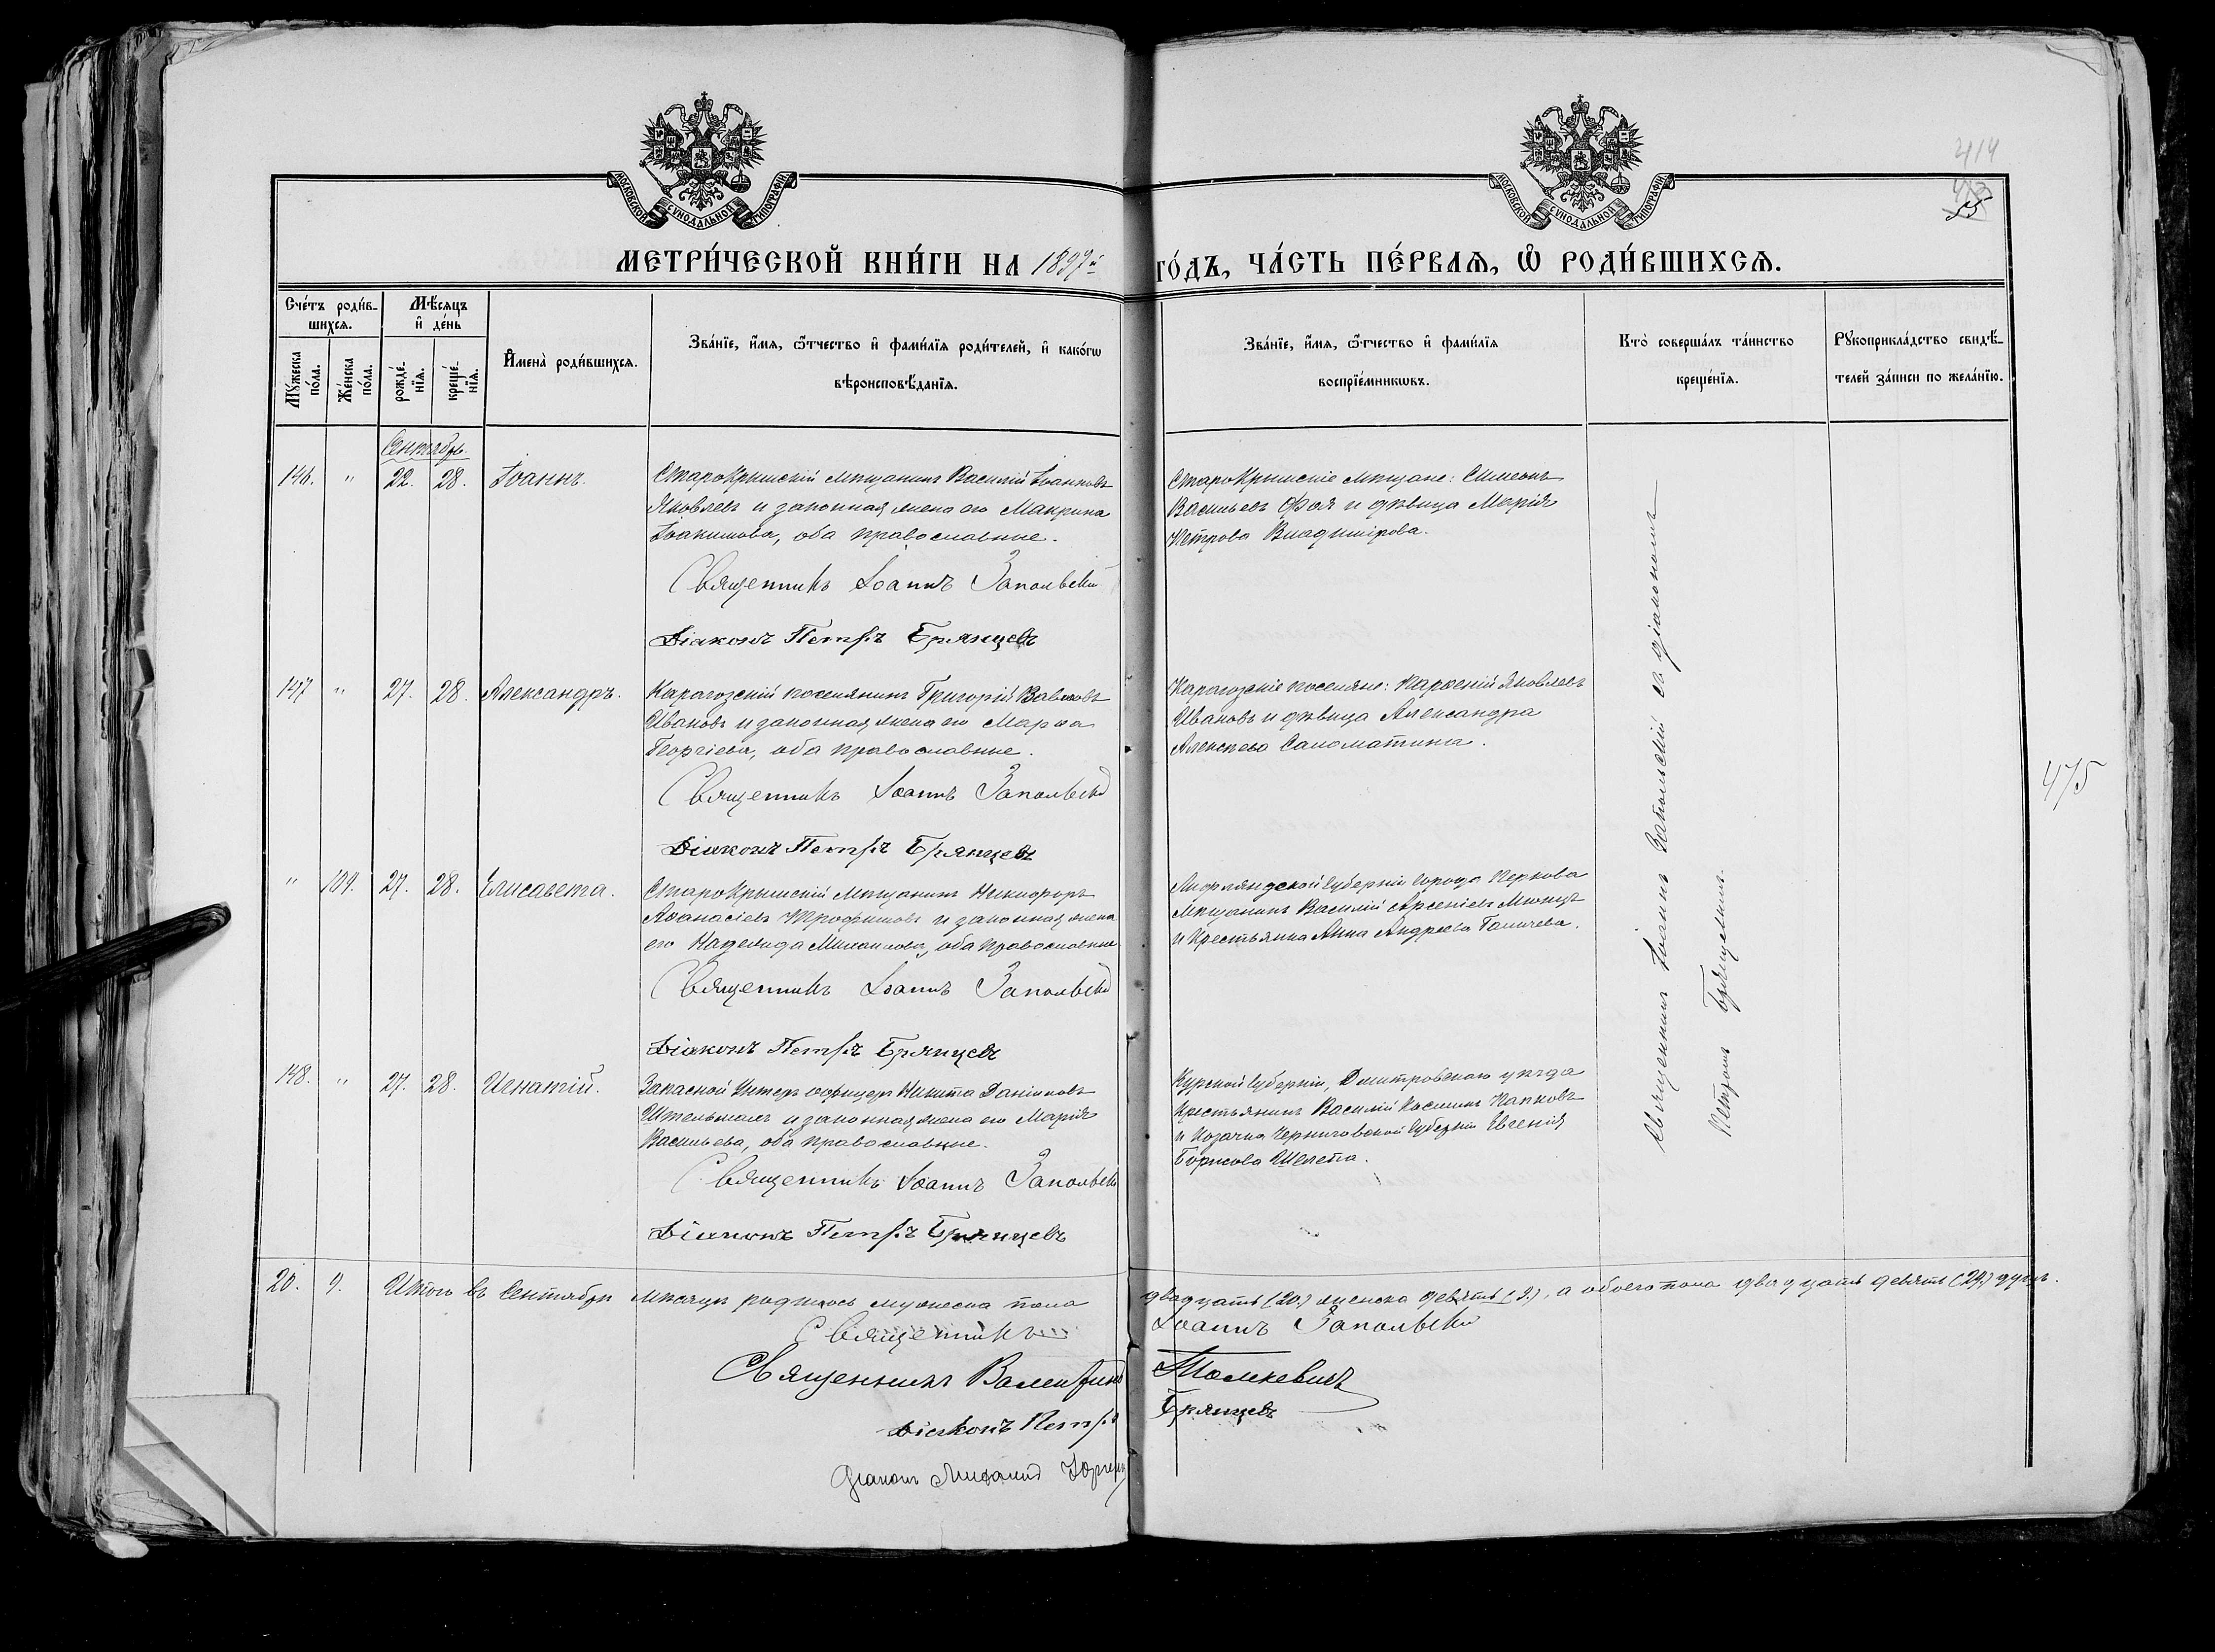 МОСКОВСКОЙ СѴНОДАЛЬНОЙ ТИПОГРАФІИ
МОСКОВСКОЙ СѴНОДАЛЬНОЙ ТИПОГРАФІИ
414
55
МЕТРИ́ЧЕСКОЙ КНИ́ГИ НА 1897й ГО́ДЪ, ЧА́СТЬ ПЕ́РВАЯ, Ѽ РОДИ́ВШИХСЯ.
Сче́тъ роди́в-
шихся.
Мѣ́сяцъ
и҆ де́нь
Мꙋ́жеска
по́ла.
Же́нска
по́ла.
рожде́-
нїя.
креще́-
нїя.
И҆мена̀ роди́вшихся.
Зва́нїе, и҆́мя, ѻ҆́тчество и҆ фами́лїя роди́телей, и҆ како́гѡ
вѣроисповѣ́данїя.
Зва́нїе, и҆́мя, ѻ҆́тчество и҆ фами́лїя
воспрїе́мникѡвъ.
Кто̀ соверша́лъ та́инство
креще́нїя.
Рꙋкоприкла́дство свидѣ́-
телей за́писи по жела́нїю.
Сентябрь.
146. " 22. 28. Іоаннъ.
СтароКрымскій мѣщанинъ Василій Іоанновъ
Яковлевъ и законная жена его Макрина
Іоакимова, оба православные.
Священникъ Іоаннъ Запольскій
Діаконъ Петръ Брянцевъ
СтароКрымскіе мѣщане: Симеонъ
Васильевъ Фоя и дѣвица Марія
Петрова Владимірова.
147 " 27. 28. Александръ.
Карагозскій поселянинъ Григорій Вавиловъ
Ивановъ и законная жена его Марѳа
Георгіева, оба православные.
Священникъ Іоаннъ Запольскій
Діаконъ Петръ Брянцевъ
Карагозскіе поселяне: Парѳеній Яковлевъ
Ивановъ и дѣвица Александра
Алексѣева Саломатина.
475
" 109. 27. 28. Елисавета.
СтароКрымскій мѣщанинъ Никифоръ
Аѳанасіевъ Трофимовъ и законная жена
его Надежда Михаилова, оба православные
Священникъ Іоаннъ Запольскій
Діаконъ Петръ Брянцевъ
Лифляндской Губерніи города Пернова
мѣщанинъ Василій Арсеніевъ
и крестьянка Анна Андреева Галичева.
148. " 27. 28. Игнатій.
Запасной Унтеръ офицеръ Никита Даніиловъ
и законная жена его Марія
Васильева, оба православные.
Священникъ Іоаннъ Запольскій
Діаконъ Петръ Брянцевъ
Курской Губерніи, Дмитровскаго уѣзда
крестьянинъ Василій Папковъ
и козачка Черниговской Губерніи Евгенія
Борисова Шелета.
Священникъ Іоаннъ Запольскій съ діакономъ
Петромъ Брянцевымъ.
20. 9. Итого въ Сентябрѣ мѣсяцѣ родилось мужеска пола двадцать (20.) женска девять (9.), а обоего пола двадцать девять (29.) душъ.
Священникъ Іоаннъ Запольскій
Священникъ Валентинъ Томкевичъ
Діаконъ Петръ Брянцевъ
Діаконъ Михаилъ